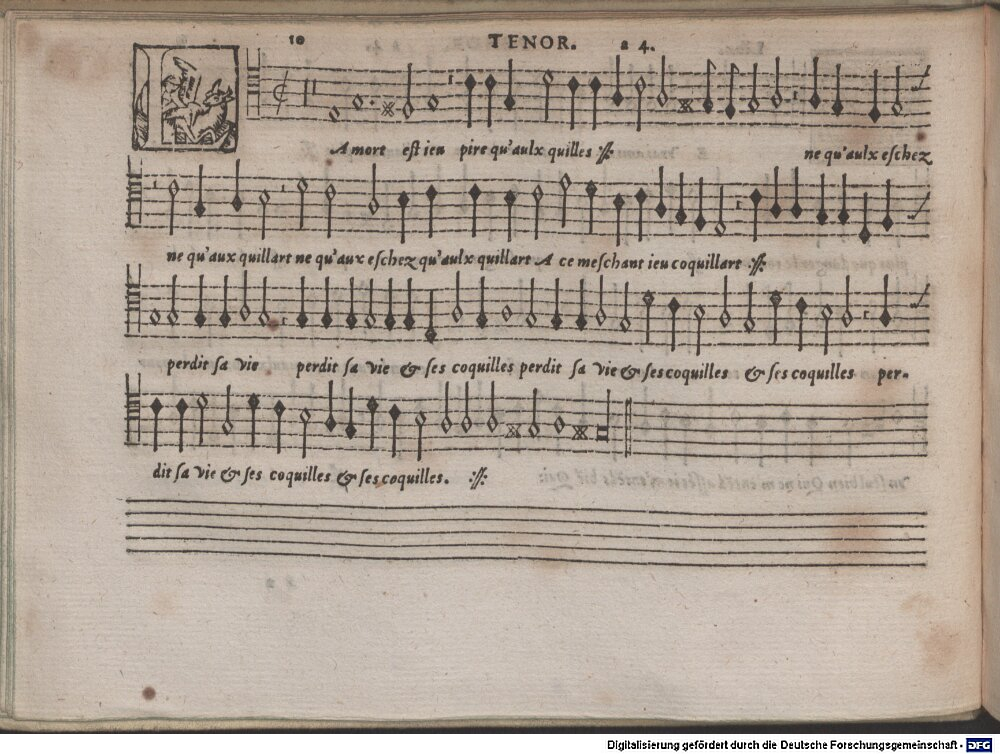 10 TENOR. a 4.
LA mort est ieu pire qu'aulx quilles :∥: ne qu'aulx eschez
ne qu'aux quillart ne qu'aux eschez qu'aulx quillart A ce meschant ieu coquillart :∥:
perdit sa vie perdit sa vie & ses coquilles perdit sa vie & ses coquilles & ses coquilles per-
dit sa vie & ses coquilles & ses coquilles. :∥:
Digitalisierung gefördert durch die Deutsche Forschungsgemeinschaft - DFG